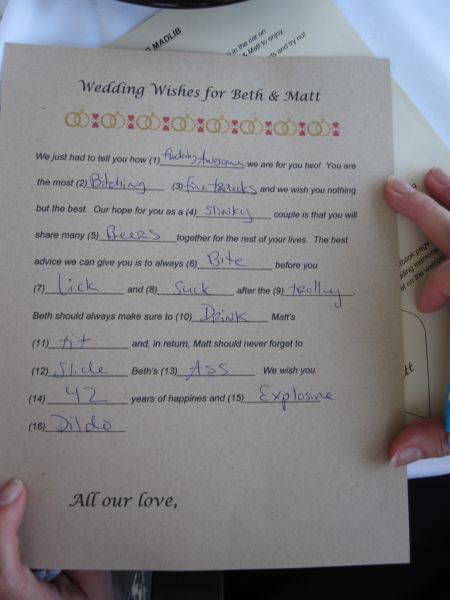 G MADLIB
ng in the car on
& Matt to enjoy.
rds and try not
Wedding Wishes for Beth & Matt
We just had to tell you how (1) fucking Awesome we are for you two! You are
the most (2) Bitching (3) fire trucks and we wish you nothing
but the best. Our hope for you as a (4) Slinky couple is that you will
share many (5) Beers together for the rest of your lives. The best
advice we can give you is to always (6) Bite before you
(7) Lick and (8) Suck after the (9) trolley.
Beth should always make sure to (10) Drink Matt's
(11) tit and, in return, Matt should never forget to
(12) Slide Beth's (13) Ass. We wish you
(14) 42 years of happines and (15) Explosive
(16) Dildo
All our love,
tbook page
dding memories
at on the
tt